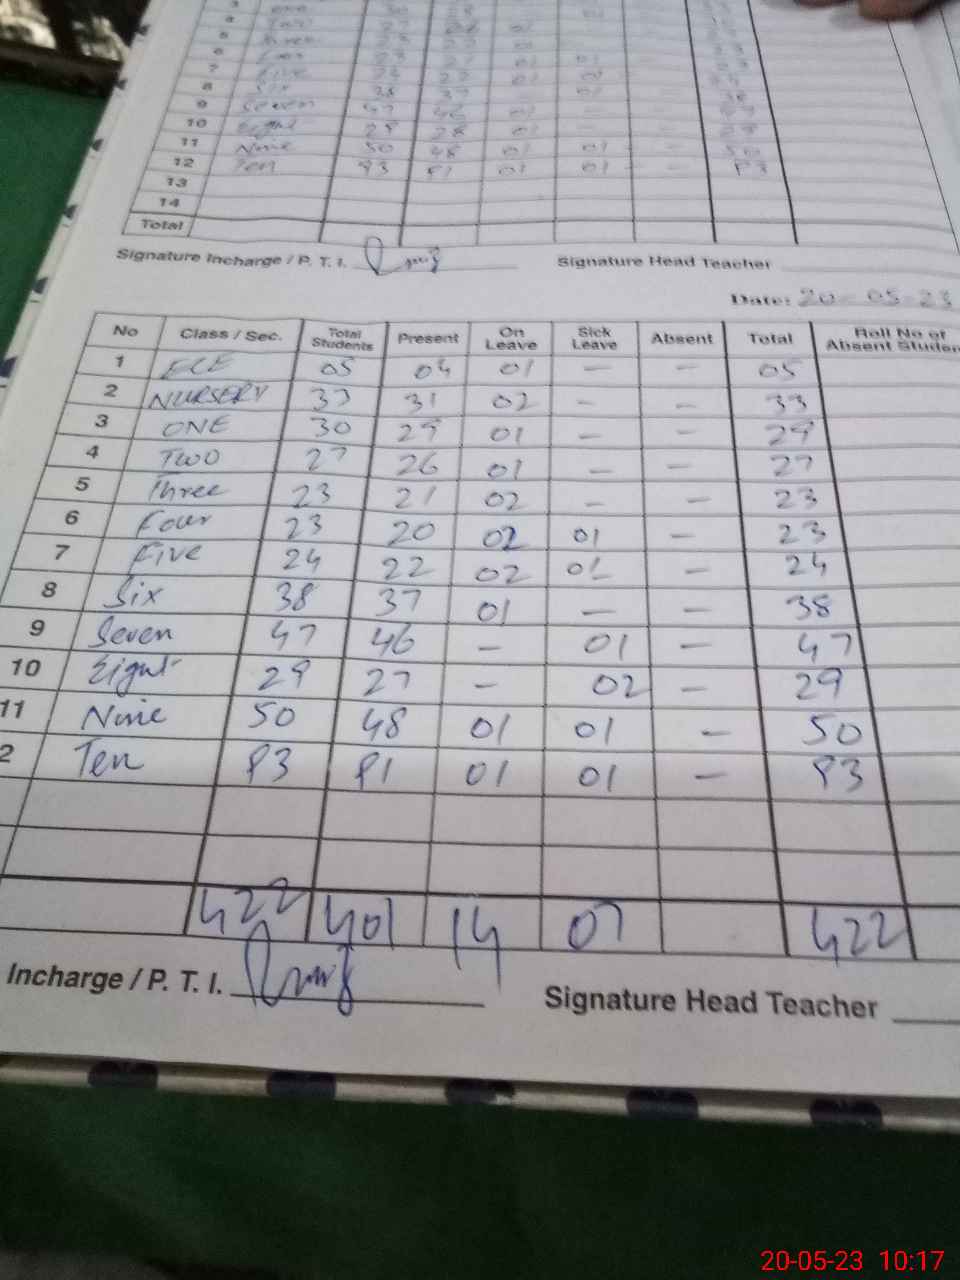 8 Six 38 37 - 01 -
9 Seven 47 46 01 - - 47
10 Eight 29 28 01 - - 29
11 Nine 50 48 01 01 - 50
12 Ten 83 81 01 01 - 83
13
14
Total
Signature Incharge / P. T. I.
Signature Head Teacher
Date: 20-05-23
No Class / Sec. Total Students Present On Leave Sick Leave Absent Total Roll No of Absent Studen
1 ECE 05 04 01 - - 05
2 NURSERY 33 31 02 - - 33
3 ONE 30 29 01 - - 29
4 TWO 27 26 01 - - 27
5 Three 23 21 02 - - 23
6 Four 23 20 02 01 - 23
7 Five 24 22 02 01 - 24
8 Six 38 37 01 - - 38
9 Seven 47 46 - 01 - 47
10 Eight 29 27 - 02 - 29
11 Nine 50 48 01 01 - 50
2 Ten 83 81 01 01 - 83
422 401 14 07 422
Incharge / P. T. I.
Signature Head Teacher
20-05-23 10:17